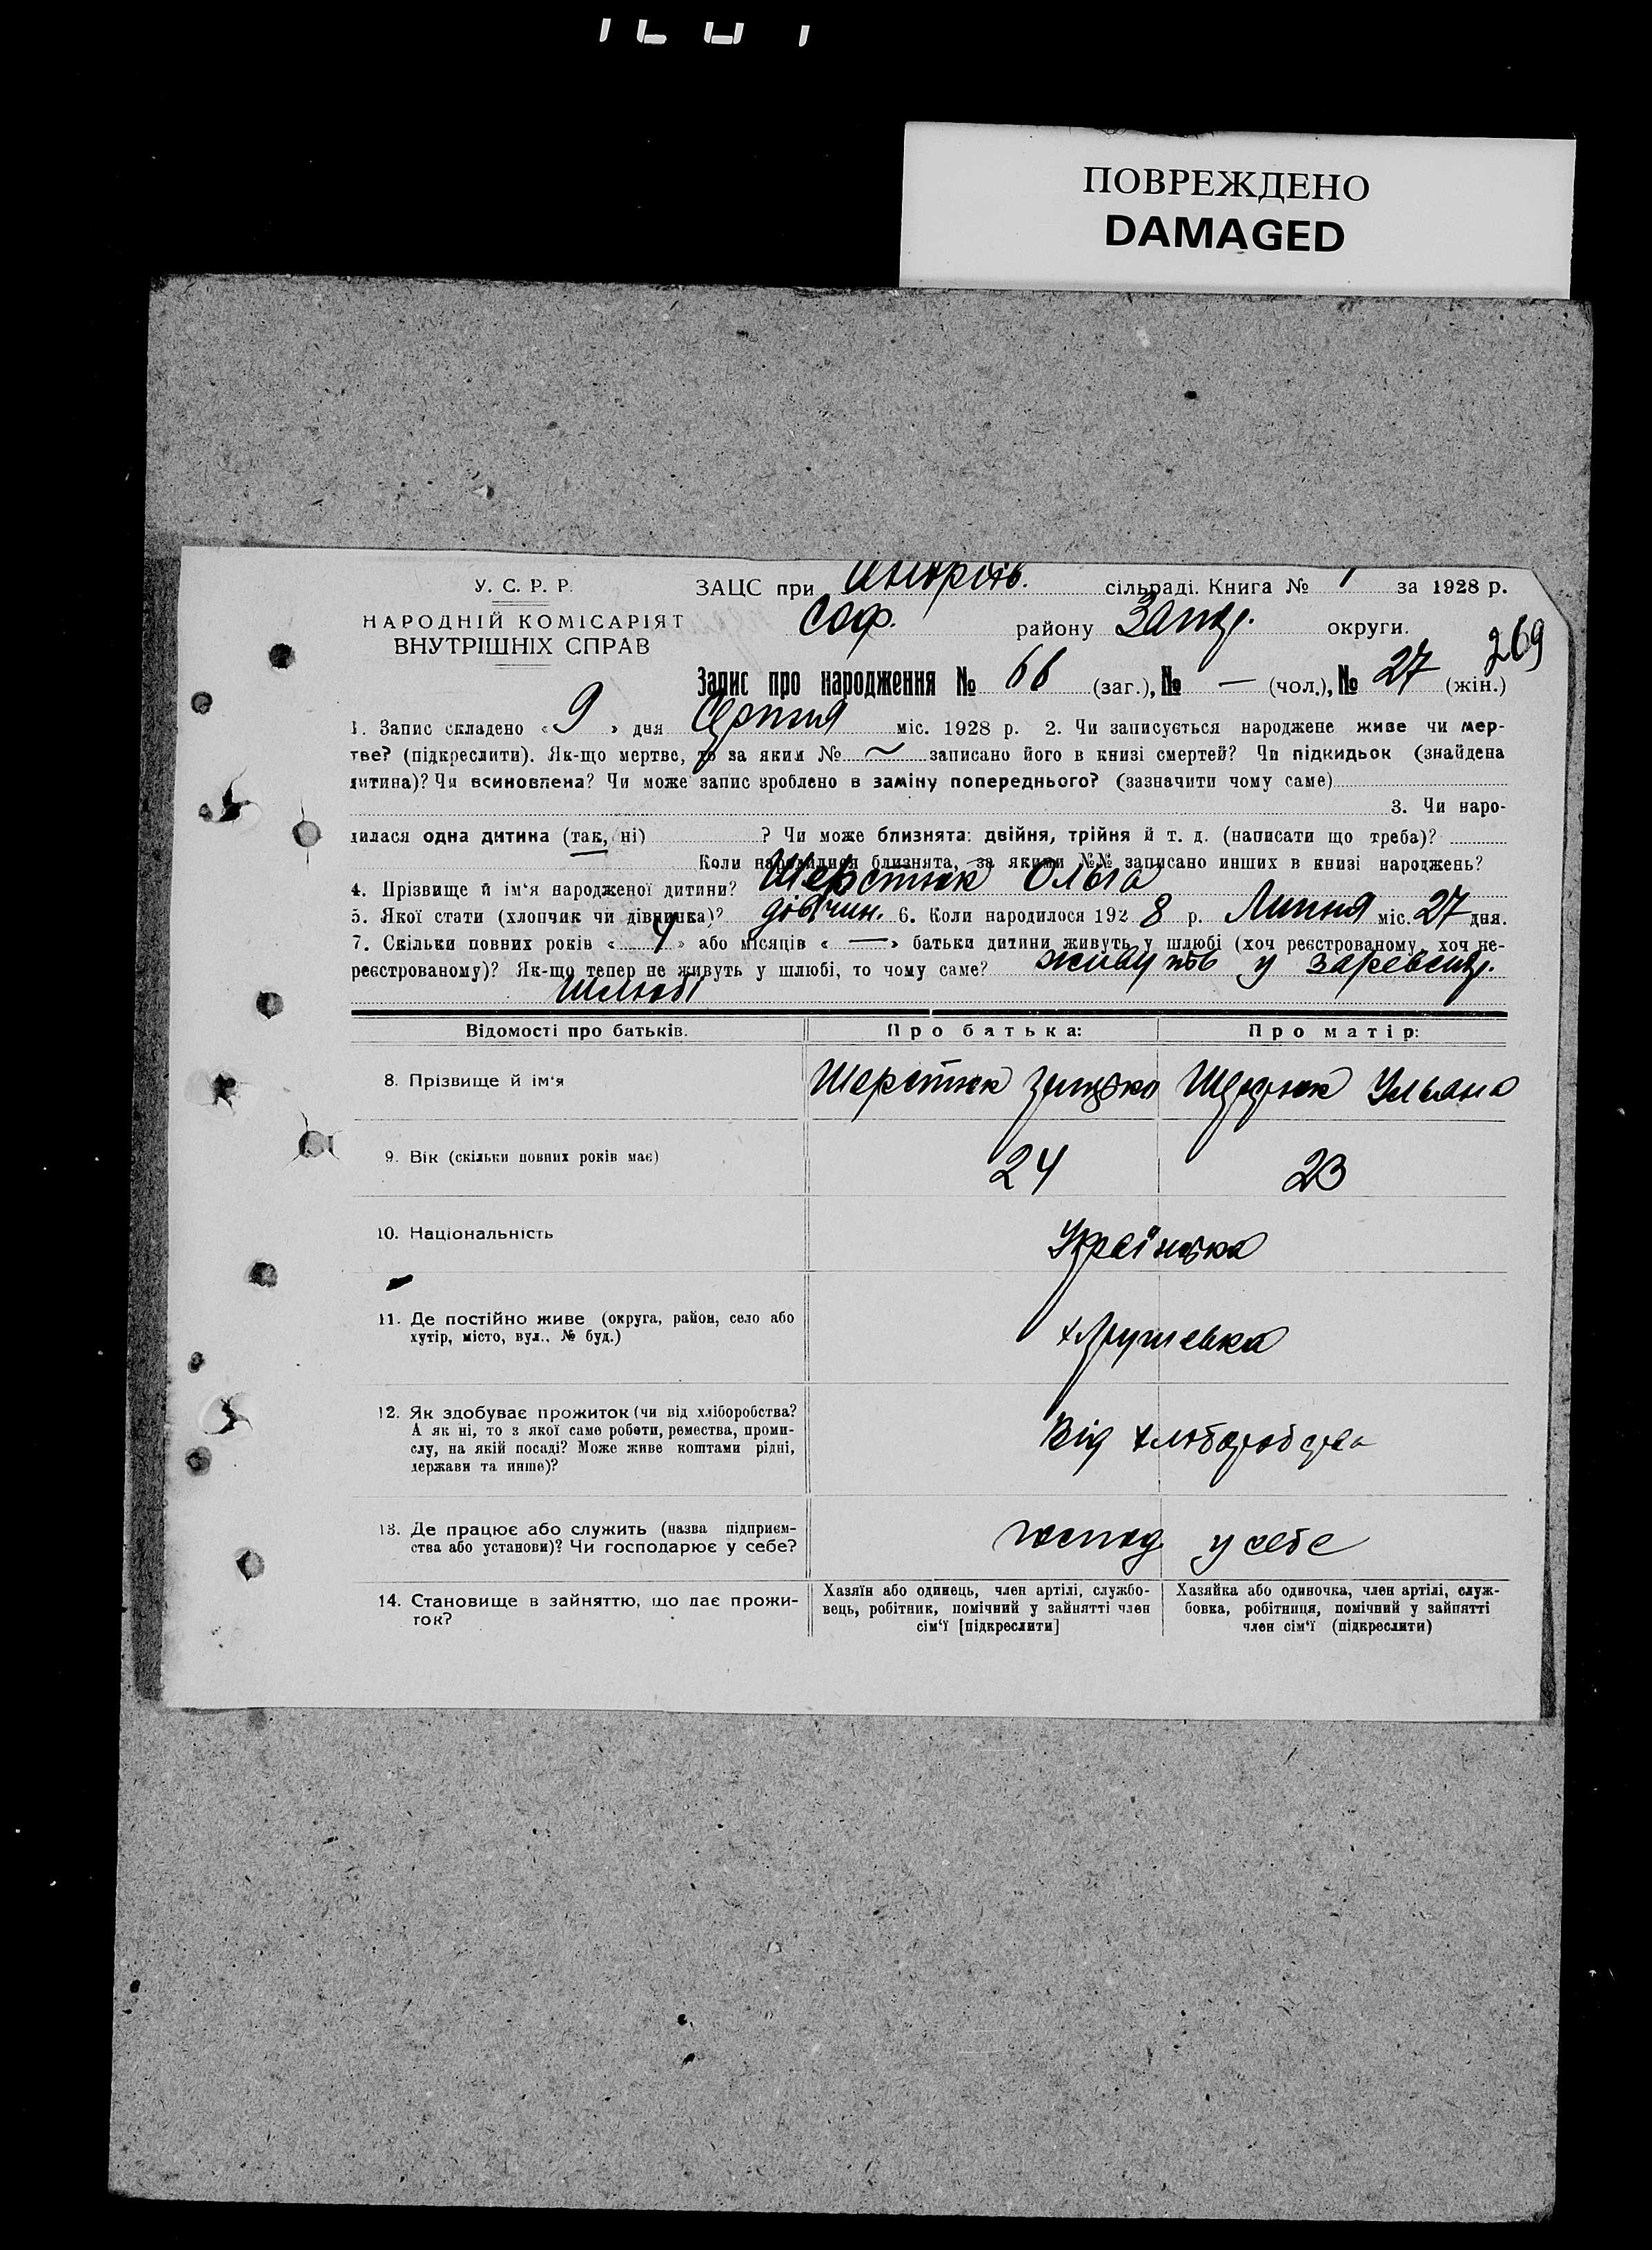 ПОВРЕЖДЕНО
DAMAGED
У. С. Р. Р.
НАРОДНІЙ КОМІСАРІЯТ
ВНУТРІШНІХ СПРАВ
ЗАЦС при сільраді. Книга № 1 за 1928 р.
Соф. району округи.
269
Запис про народження № 66 (заг.), № — (чол.), № 27 (жін.)
1. Запис складено « 9 » дня Серпня міс. 1928 р. 2. Чи записується народжене живе чи мер-
тве? (підкреслити). Як-що мертве, то за яким № ~ записано його в книзі смертей? Чи підкидьок (знайдена
дитина)? Чи всиновлена? Чи може запис зроблено в заміну попереднього? (зазначити чому саме)
3. Чи наро-
дилася одна дитина (так, ні) ? Чи може близнята: двійня, трійня й т. д. (написати що треба)?
Коли народилися близнята, за якими №№ записано инших в книзі народжень?
4. Прізвище й ім‘я народженої дитини? Шерстюк Ольга
5. Якої стати (хлопчик чи дівчинка)? дівчин. 6. Коли народилося 192 8 р. Липня міс. 27 дня.
7. Скільки повних років « 4 » або місяців « — » батьки дитини живуть у шлюбі (хоч реєстрованому, хоч не-
реєстрованому)? Як-що тепер не живуть у шлюбі, то чому саме? живуть у
шлюбі
Відомості про батьків. Про батька: Про матір:
8. Прізвище й ім‘я Шерстюк Ульяна
9. Вік (скільки повних років має) 24 23
10. Національність Українська
11. Де постійно живе (округа, район, село або
хутір, місто, вул., № буд.)
12. Як здобуває прожиток (чи від хліборобства?
А як ні, то з якої саме роботи, ремества, проми-
слу, на якій посаді? Може живе коштами рідні,
держави та инше)?
Від
13. Де працює або служить (назва підприєм-
ства або установи)? Чи господарює у себе?
господ у себе
14. Становище в зайняттю, що дає прожи-
ток?
Хазяїн або одинець, член артілі, службо-
вець, робітник, помічний у зайнятті член
сім‘ї [підкреслити]
Хазяйка або одиночка, член артілі, служ-
бовка, робітниця, помічний у зайнятті
член сім‘ї (підкреслити)